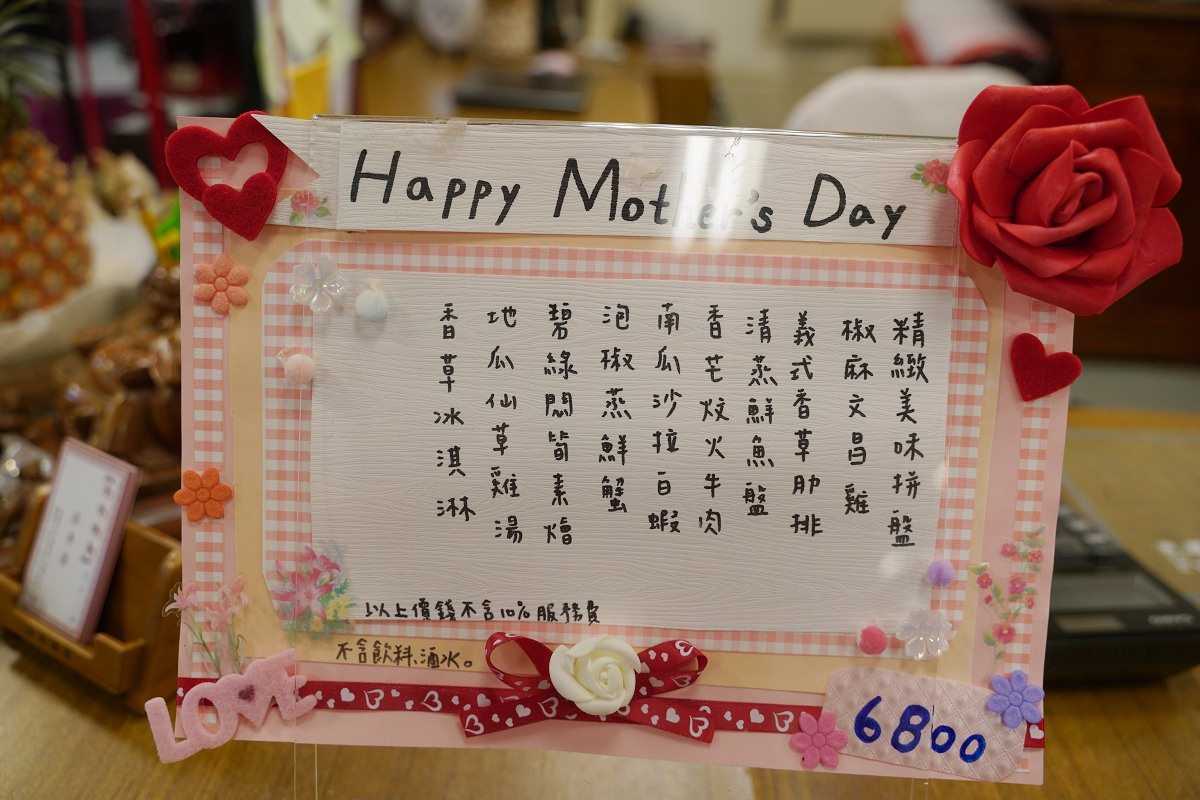 Happy Mother's Day
精緻美味拼盤
椒麻文昌雞
義式香草肋排
清蒸鮮魚盤
香芒炆火牛肉
南瓜沙拉百蝦
泡椒蒸鮮蟹
碧綠閃筍素燴
地瓜仙草雞湯
香草冰淇淋
以上價錢不含10%服務費
不含飲料、酒水。
6800
LOVE